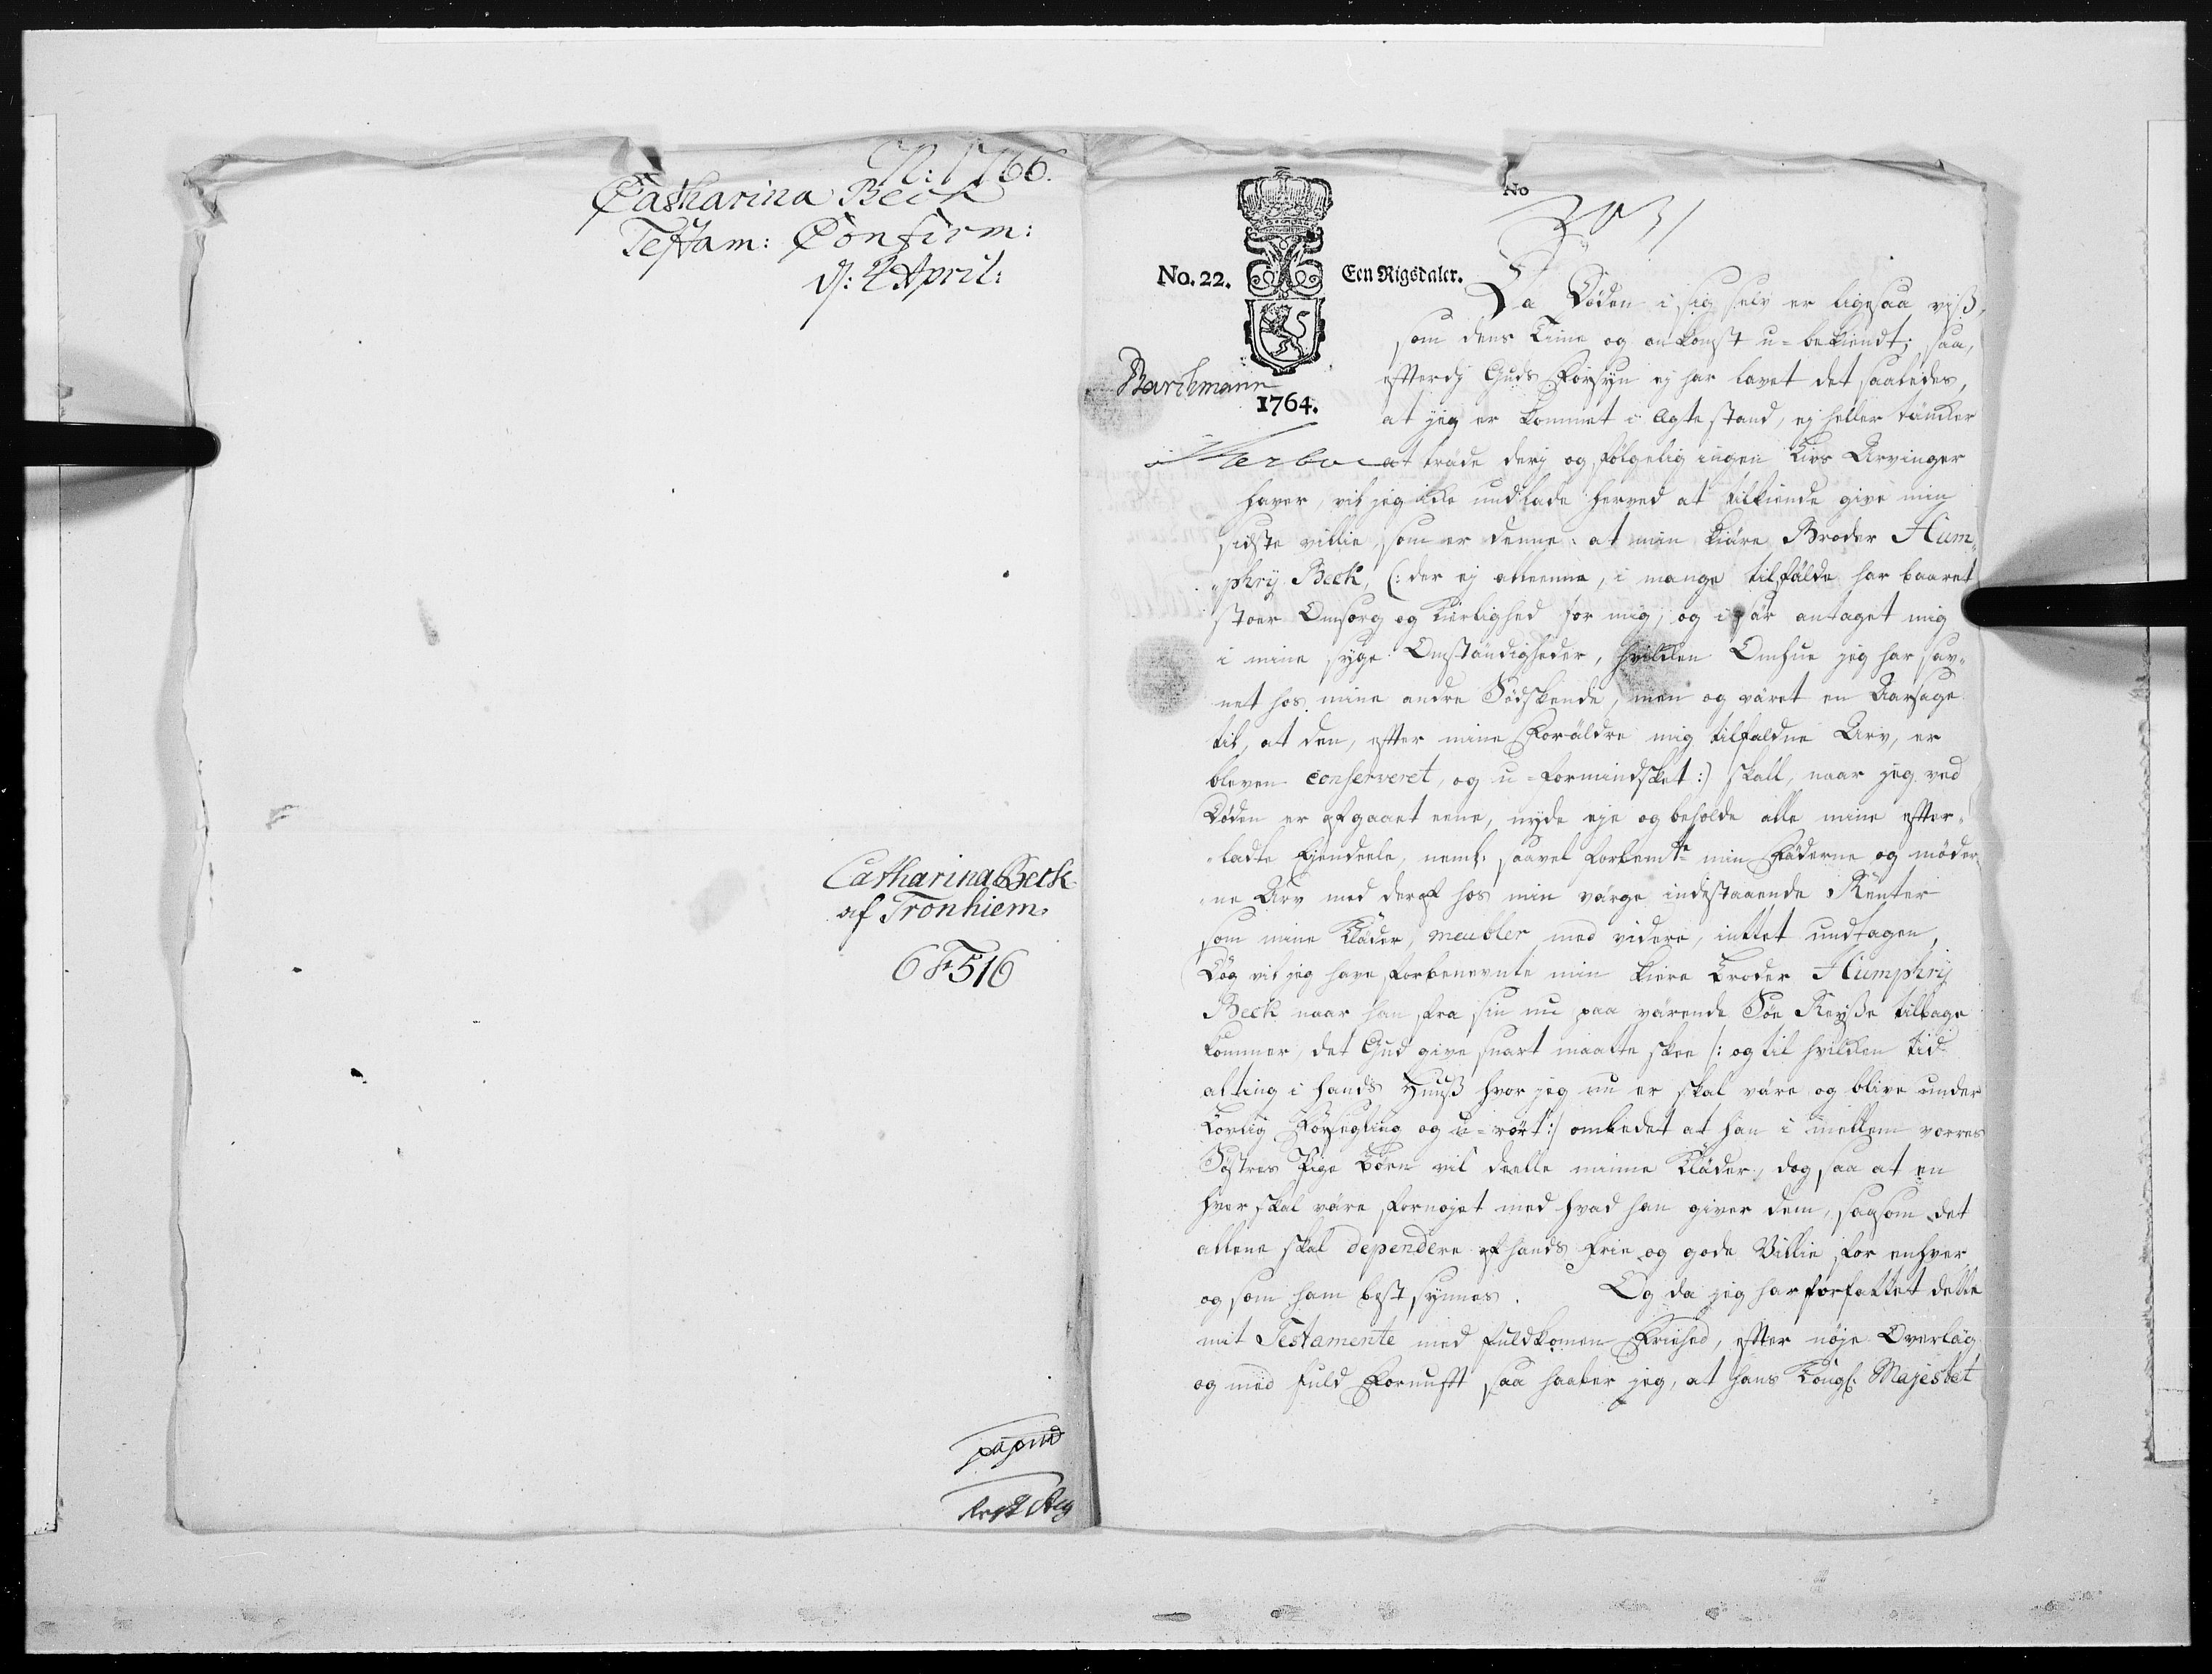 N: 1766.
Catharina Beck
Testam: Confirm:
d: 4 April:
Catharina Beck
af Tronhiem
6 F 516
No
2031
No. 22.
Een Rigsdaler.
1764.
Barthmann
Da Døden i sig selv er ligesaa viss,
som dens Time og ankomst u-bekiendt; saa,
efterdj Guds Forsyn ej har lavet det saaledes,
at jeg er kommet i Ægtestand, ej heller täncker
at träde derj og følgelig ingen Livs Arvinger
haver, vil jeg ikke undlade herved at tilkiende give min
sidste villie, som er denne: at min kiäre Broder Hum„
„phrij Beck, (: der ej alleene, i mange tilfälde har baaret
stoer Omsorg og Kierlighed for mig, og i sär antaget mig
i mine syge Omständigheder, hvilken Omhue jeg har sav„
net hos mine andre Södskende, men og väret en Aarsage
til, at den, efter mine Foräldre mig tilfaldne Arv, er
bleven conserveret, og u-formindsket :) skall, naar jeg ved
Döden er afgaaet eene, nyde eje og beholde alle mine efter„
„ladte Ejendeele, neml. saavel forbemte min Fäderne og möder
„ne Arv med deraf hos min värge indestaaende Renter
som mine Kläder, meubler med videre, inttet undtagen,
Dog vil jeg have forbenevnte min kiere broder Humphrij
Beck naar han fra sin nu paa värende Söe Reysse tilbage
kommer, det Gud give snart maatte skee /: og til hvilken tid
alting i hands Huuss hvor jeg nu er skal väre og blive under
Lovlig Forsegling og u-rört :/ ombedet at han i mellem vorres
Söstres Pige börn vil deelle minne Kläder, dog saa at en
hver skal väre fornöjet med hvad han giver dem, saasom det
allene skal dependere af hands frie og gode Villie for enhver
og som ham best synnes. Og da jeg har forfattet dette
mit Testamente med fuldkomen Friehed, efter nöje Overläg
og med fuld Fornuft saa haaber jeg, at hans Kongl: Majestet